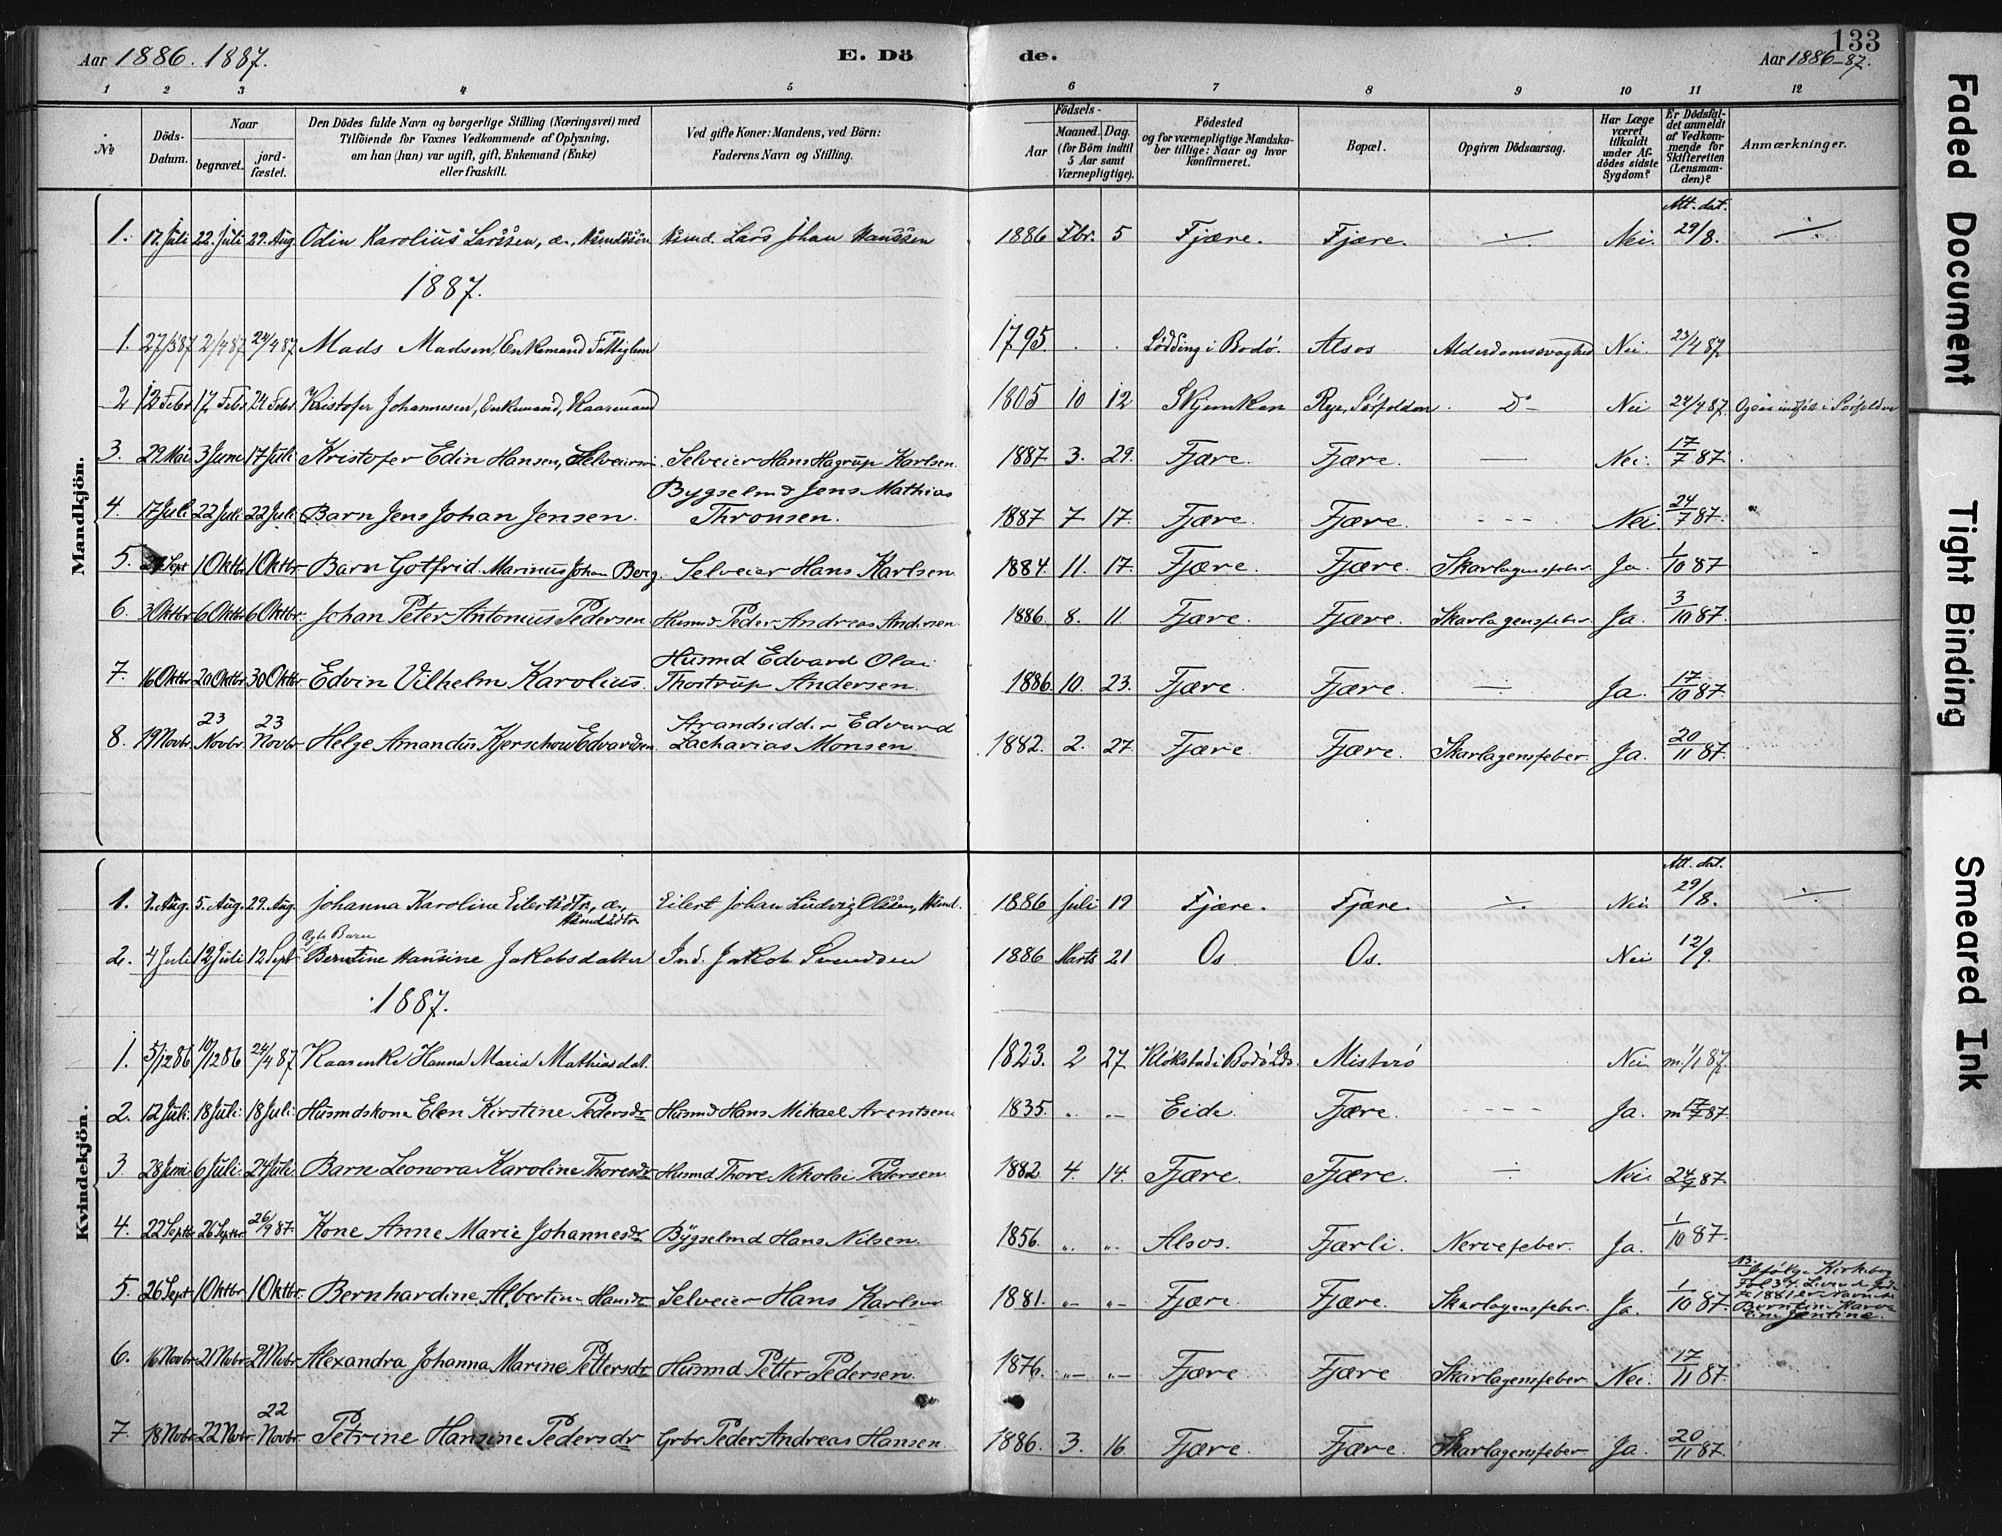 Aar 1886. 1887. E. Döde. Aar 1886-87. 133
1 2 3 4 5 6 7 8 9 10 11 12
№
Döds-Datum.
Naar
begravet.
jordfæstet.
Den Dödes fulde Navn og borgerlige Stilling (Næringsvei) med
Tilföiende for Voxnes Vedkommende af Oplysning,
om han (hun) var ugift, gift, Enkemand (Enke)
eller fraskilt.
Ved gifte Koner: Mandens, ved Börn:
Faderens Navn og Stilling.
Födsels-
Aar
Maaned. Dag.
(for Börn indtil
5 Aar samt
Værnepligtige).
Födested
og for værnepligtige Mandskaber tillige: Naar og hvor
Konfirmeret.
Bopæl.
Opgiven Dödsaarsag.
Har Læge
været
tilkaldt
under Afdödes sidste
Sygdom?
Er Dödsfaldet anmeldt
af Vedkommende for
Skifteretten
(Lensmanden)?
Anmærkninger.
Mandkjön.
Att. dat.
1. 17. Juli 22. Juli 29. Aug. Odin Karolius Larssen, æ., Husmdssön Husmd. Lars Johan Hanssen 1886 Fbr. 5 Fjære. Fjære. -/- Nei. 29/8. -/-
1887.
1. 27/3 87 2/4 87 24/4 87 Mads Madsen, Enkemand Fattiglem 1795. . . Lödding i Bodö. Alsos Alderdomssvaghed Nei. 23/4 87
2 12 Febr 17 Febr 24 Febr. Kristofer Johannesen, Enkemand, Kaarmand 1805 10 12 Skjemken Røs, Sörfolden D- Nei 24/4 87. Ogsaa indført i Sörfolden
3. 29 Mai 3 Juni 17 Juli Kristofer Edin Hansen, Selveier Selveier Hans Hagrup Karlsen. 1887 3. 29. Fjære. Fjære. — Nei. 17/7 87.
Bygselmd Jens Mathias
4. 17 Juli 22 Juli 22 Juli Barn Jens Johan Jensen. Thronsen. 1887 7 17. Fjære. Fjære. --- Nei. 24/7 87.
5. Sept 1 Oktbr 1 Oktbr. Barn Gotfrid Marinus Johan Berg. Selveier Hans Karlsen. 1884. 11. 17. Fjære. Fjære. Skarlagensfeber. Ja. 1/10 87
6. 3 Oktbr 6 Oktbr 6 Oktbr. Johan Peter Antonius Pedersen Husmd Peder Andreas Andersen 1886. 8. 11 Fjære. Fjære. Skarlagensfeber. Ja. 3/10 87.
Husmd Edvard Olai
7. 16 Oktbr 20 Oktbr 30 Oktbr. Edvin Vilhelm Karolius. Thostrup Andersen. 1886. 10. 23. Fjære. Fjære. — Ja. 17/10 87.
Strandsidder Edvard
8. 19 Novbr. 23 Novbr. 23 Novbr Helge Amandus Kjerschow Edvardsen Zacharias Monsen. 1882. 2. 27. Fjære Fjære. Skarlagensfeber. Ja. 20/11 87.
Kvindekjön.
Att. dat.
1. 1. Aug. 5. Aug. 29. Aug. Johanna Karoline Eilertsdtr, æ., Husmdsdtr Eilert Johan Ludvig Olssen, Husmd. 1886 Juli 19 Fjære. Fjære. -/- Nei 29/8. -/-
Ægte Barn
2. 4 Juli 12 Juli 12 Sept Berntine Hansine Jakobsdatter Ind. Jakob Svendsen 1886 Marts 21 Os Os. Nei 12/9.
1887.
1. 5/12 86 10/12 86 24/4 87 Kaarenke Hanna Maria Mathiasdat. 1823. 2 27 Klökstad i Bodö Lds. Misterö Nei m. 1/1 87.
2. 12 Juli. 18 Juli. 18 Juli. Husmdskone Elen Kirstine Pedersdr Husmd Hans Mikael Arentsen 1835. „ „ Eide. Fjære. ---- Ja. m 17/7 87.
3. 28 Juni 6 Juli. 24 Juli. Barn Leonora Karoline Thoresdr Husmd Thore Nikolai Pedersen 1882 4. 14. Fjære. Fjære. -/- Nei. 24/7 87.
4. 22 Septbr 26 Septbr. 26/9 87. Kone Anne Marie Johannesdr Bygselmd Hans Nilsen. 1856. „ „ Alsos. Fjærli. Nervefeber. Ja. 1/10 87.
5. 26 Sept 1 Oktbr 1 Oktbr. Bernhardine Albertine Hansdr Selveier Hans Karlsen 1881. „ „ Fjære. Fjære. Skarlagensfeber. Ja. 1/10 87.
6. 16 Novbr. 21 Novbr. 21 Novbr. Alexandra Johanna Marine Pettersdr Husmd Petter Pedersen. 1876. „ „ Fjære Fjære Skarlagensfeber. Nei. 17/11 87.
7. 18 Novbr. 22 Novbr. 22 Novbr. Petrine Hansine Pedersdr Grbr Peder Andreas Hansen 1886. 3. 16 Fjære. Fjære. Skarlagensfeber Ja. 20/11 87.
Faded Document
Tight Binding
Smeared Ink